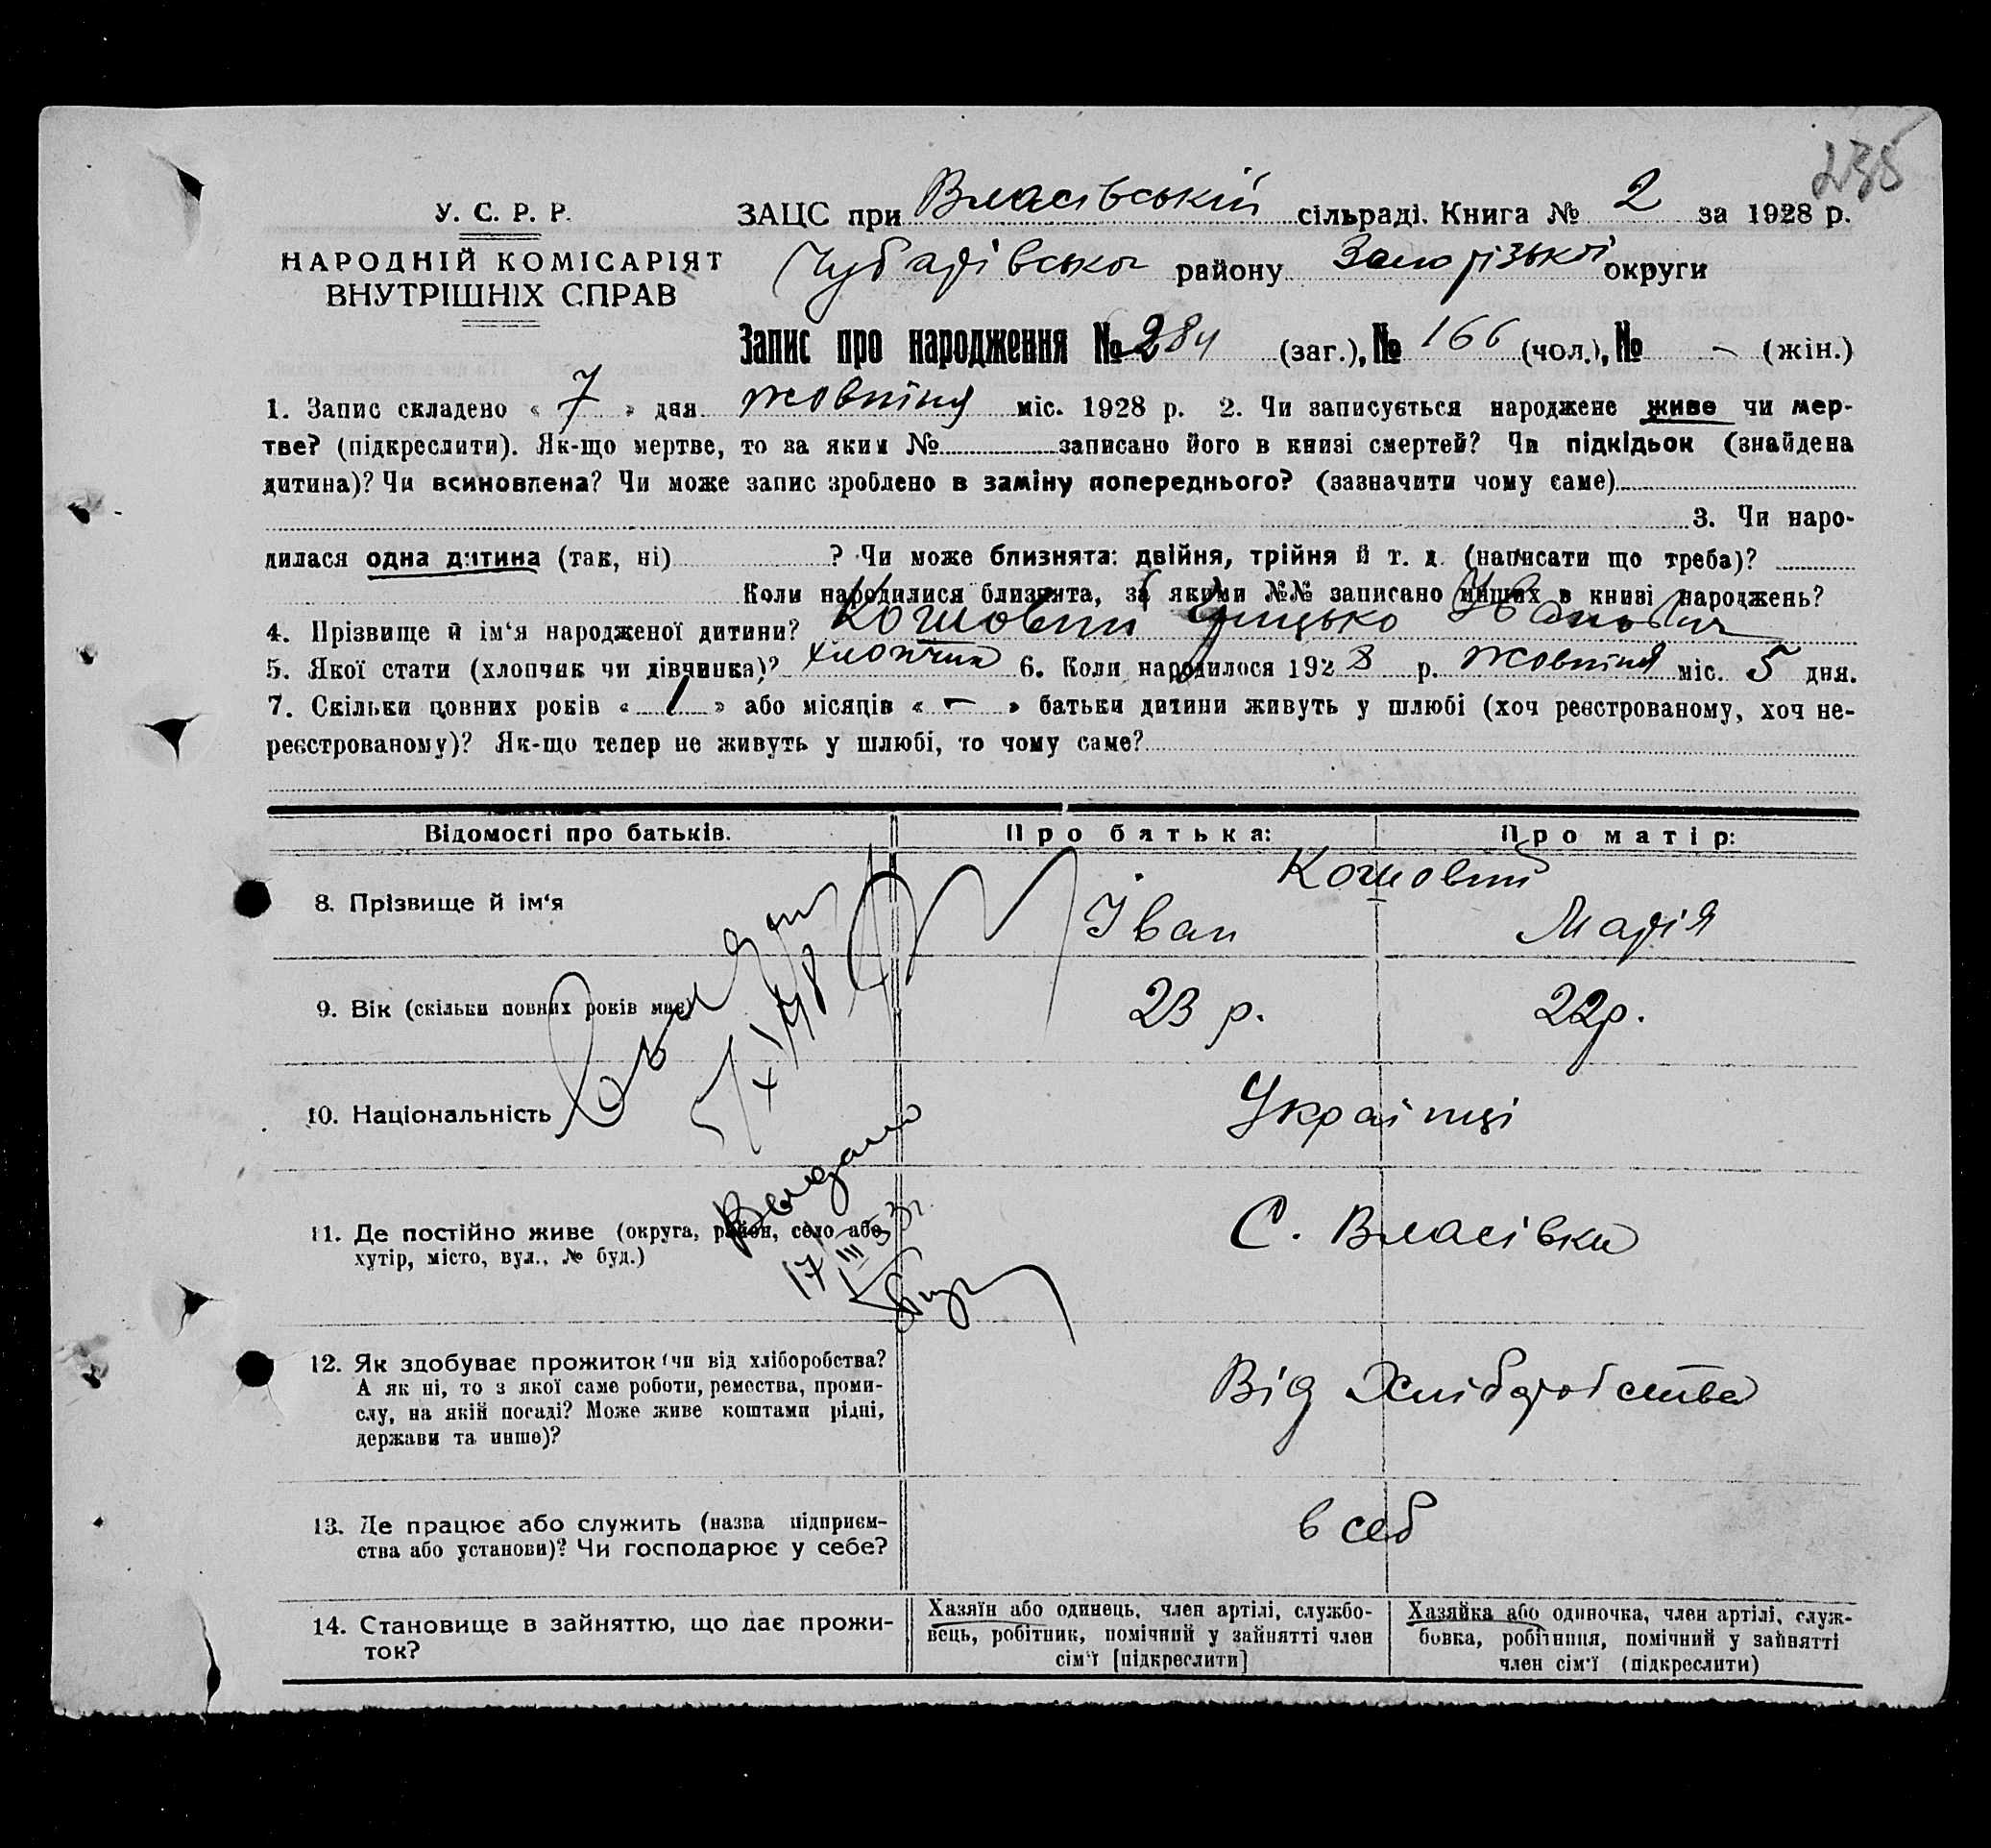 235
У. С. Р. Р.
НАРОДНІЙ КОМІСАРІЯТ
ВНУТРІШНІХ СПРАВ
ЗАЦС при Власівській сільраді. Книга № 2 за 1928 р.
Чубарівськ району Запорізької округи
Запис про народження № 284 (заг.), № 166 (чол.), № - (жін.)
1. Запис складено « 7 » дня жовтня міс. 1928 р. 2. Чи записується народжене живе чи мер-
тве? (підкреслити). Як-що мертве, то за яким № записано його в книзі смертей? Чи підкідьок (знайдена
дитина)? Чи всиновлена? Чи може запис зроблено в заміну попереднього? (зазначити чому саме)
3. Чи наро-
дилася одна дитина (так, ні) ? Чи може близнята: двійня, трійня й т. д. (написати що треба)?
Коли народилися близнята, за якими №№ записано инших в книзі народжень?
4. Прізвище й ім‘я народженої дитини? Кошовий Грицько Іванович
5. Якої стати (хлопчик чи дівчинка)? хлопчик 6. Коли народилося 1928 р. жовтня міс. 5 дня.
7. Скільки повних років « 1 » або місяців « – » батьки дитини живуть у шлюбі (хоч реєстрованому, хоч не-
реєстрованому)? Як-що тепер не живуть у шлюбі, то чому саме?
Відомості про батьків. Про батька: Про матір:
Кошовий
8. Прізвище й ім‘я Іван Марія
9. Вік (скільки повних років має) 23 р. 22 р.
10. Національність Українці
Выдано
11. Де постійно живе (округа, район, село або С. Власівка
хутір, місто, вул., № буд.)
17 III
12. Як здобуває прожиток (чи від хліборобства? Від Хліборобства
А як ні, то з якої саме роботи, ремества, проми-
слу, на якій посаді? Може живе коштами рідні,
держави та инше)?
13. Де працює або служить (назва підприєм- в себ
ства або установи)? Чи господарює у себе?
14. Становище в зайняттю, що дає прожи-
ток?
Хазяїн або одинець, член артілі, службо-
вець, робітник, помічний у зайнятті член
сім‘ї [підкреслити]
Хазяйка або одиночка, член артілі, служ-
бовка, робітниця, помічний у зайнятті
член сім‘ї (підкреслити)